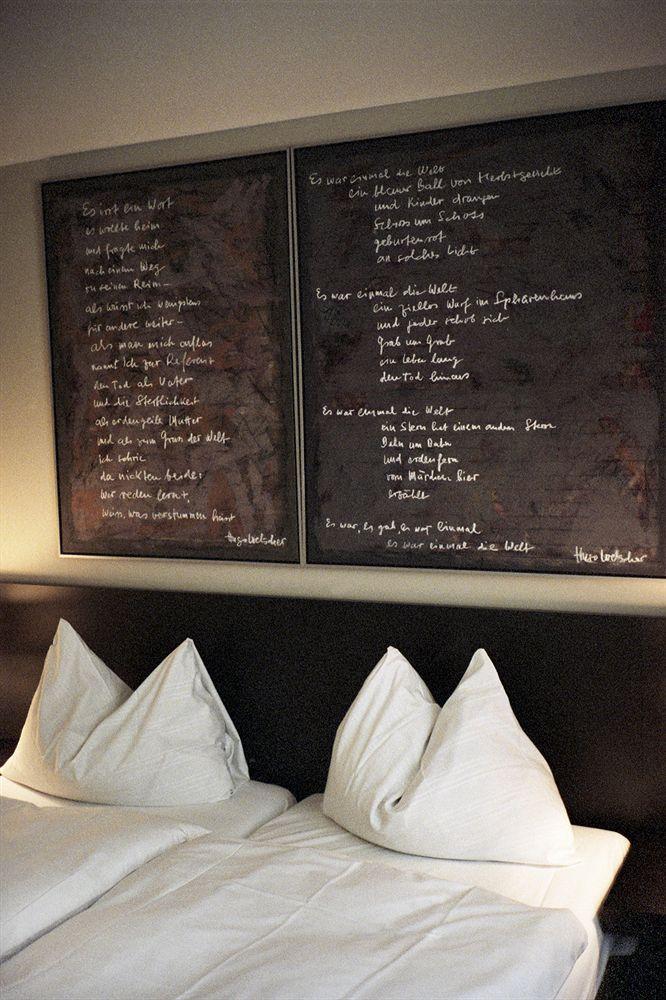 Es irrt ein Wort
es wollte heim
und fragte mich
nach einem Weg
zu seinem Reim –
als wüsst ich wenigstens
für andere weiter –
als man mich auflas
nannt ich zur Referenz
den Tod als Vater
und die Sterblichkeit
als erdengeile Mutter
und als zum Gruss der Welt
ich schrie
da nickten beide:
wer reden lernt,
weiss, was verstummen heisst
Hugo Loetscher
Es war einmal die Welt
ein blauer Ball von
und Kinder drangen
Schoss um Schoss
geburtenrot
an solches Licht
Es war einmal die Welt
ein zielloser Wurf im Sphärenhaus
und jeder schob sich
Grab um Grab
ein Leben lang
den Tod hinaus
Es war einmal die Welt
ein Stern hat einem andern Stern
Bahn um Bahn
und erdenfern
vom Märchen hier
erzählt
Es war, es gab, es war einmal
es war einmal die Welt
Hugo Loetscher